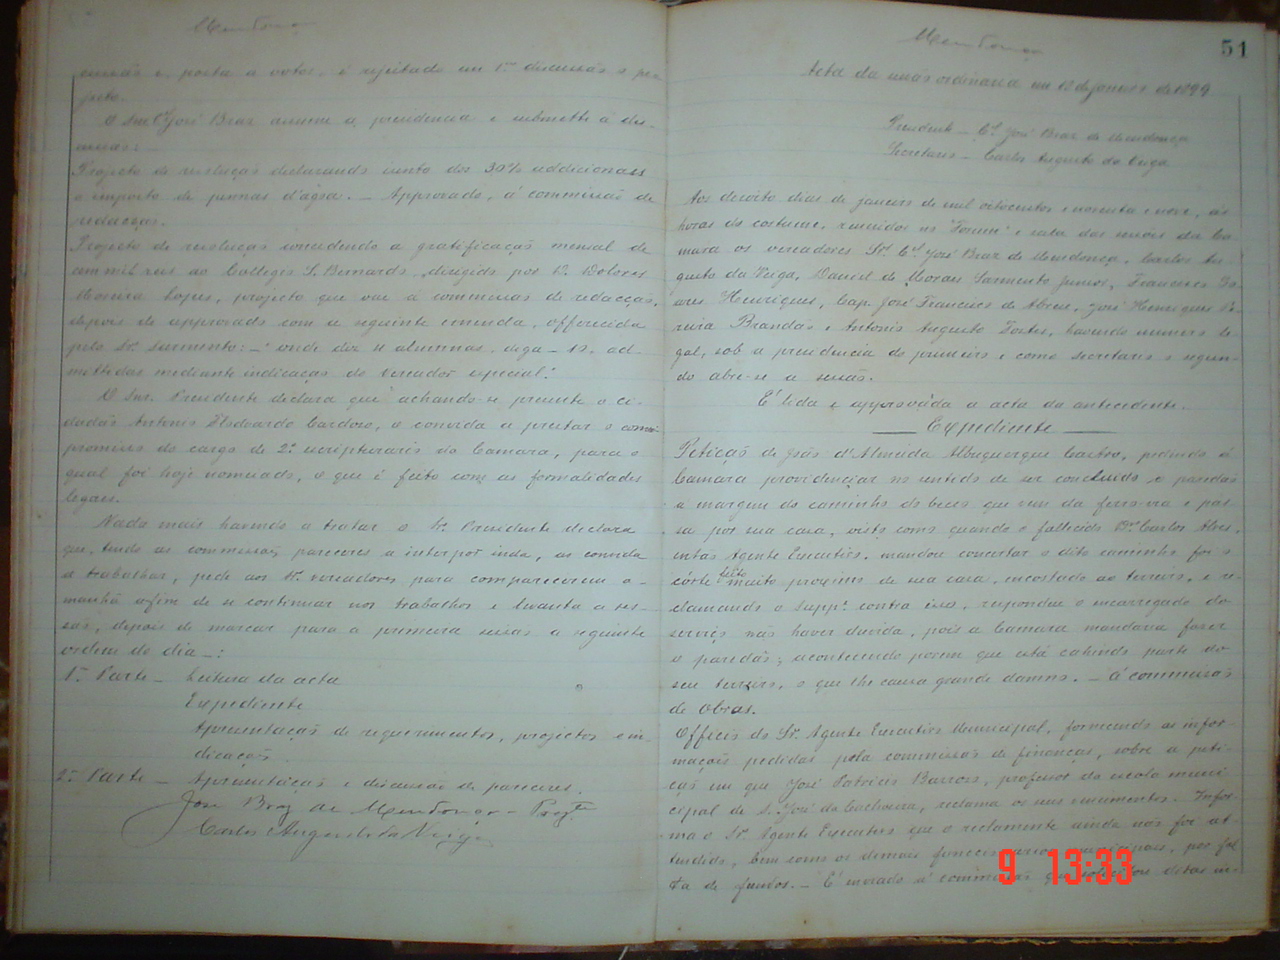 Mendonça
cussão e, posta a votos, é rejeitado em 1ª discussão o pro
jecto.
O Snr. Cel José Braz assume a presidencia e submette á dis-
cussão:
Projecto de resolução declarando isento dos 30% addicionaes
o imposto de pennas d'água. — Approvado, á commissão de
redacção.
Projecto de resolução concedendo a gratificação mensal de
cem mil reis ao Collegio S. Bernardo, dirigido por D. Dolores
Moreira Lopes, projecto que vae á commissão de redacção,
depois de approvado com a seguinte emenda, offerecida
pelo Sr. Sarmento: — "onde diz 11 alumnas, diga — 12, ad-
mettidas mediante indicação do vereador especial".
O Snr. Presidente declara que achando-se presente o ci-
dadão Antonio Eledoardo Cardoso, o convida a prestar o com-
promisso do cargo de 2º escripturario da Camara, para o
qual foi hoje nomeado, o que é feito com as formalidades
legaes.
Nada mais havendo a tratar o Sr. Presidente declara
que, tendo as commissões pareceres a interpor inda, as convida
a trabalhar, pede aos Srs. vereadores para comparecerem a-
manhã afim de se continuar nos trabalhos e levanta a ses-
são, depois de marcar para a primeira sessão a seguinte
ordem do dia —:
1ª Parte — Leitura da acta
Expediente
Apresentação de requerimentos, projectos e in-
dicação.
2ª Parte — Apresentação e discussão de pareceres.
José Braz de Mendonça — Presdte
Carlos Augusto da Veiga
Mendonça
51
Acta da sessão ordinaria em 18 de Janeiro de 1899
Presidente — Cel José Braz de Mendonça
Secretario — Carlos Augusto da Veiga
Aos dezoito dias de janeiro de mil oitocentos e noventa e nove, ás
horas do costume, reunidos no "Forum" e sala das sessões da Ca-
mara os vereadores Srs. Cel José Braz de Mendonça, Carlos Au-
gusto da Veiga, Daniel de Moraes Sarmento Junior, Francisco So-
ares Henriques, Cap. José Francisco de Abreu, José Henriques Pe-
reira Brandão e Antonio Augusto Fortes, havendo numero le-
gal, sob a presidencia do primeiro e como secretario o segun-
do abre-se a sessão.
É lida e approvada a acta da antecedente.
Expediente
Petição de João d'Almeida Albuquerque Castro, pedindo á
Camara providenciar no sentido de ser concluido o paredão
á margem do caminho do becco que vem da ferro-via e pas-
sa por sua casa, visto como quando o fallecido Dr. Carlos Alves,
então Agente Executivo, mandou concertar o dito caminho foi o
córte feito muito proximo de sua casa, encostado ao terreiro, e re-
clamando o suppe. contra isso, respondeu o encarregado do
serviço não haver duvida, pois a Camara mandaria fazer
o paredão; acontecendo porem que está cahindo parte do
seu terreiro, o que lhe causa grande damno. — Á commissão
de Obras.
Officio do Sr. Agente Executivo Municipal, fornecendo as infor-
mações pedidas pela commissão de finanças, sobre a peti-
ção em que José Patricio Barroso, professor da escola muni
cipal de S. José da Cachoeira, reclama os seus vencimentos. Infor-
ma o Sr. Agente Executivo que o reclamante ainda não foi at-
tendido, bem como os demais funccionarios municipaes, por fal
ta de fundos. — É enviado á commissão que solicitou ditas in-
9 13:33